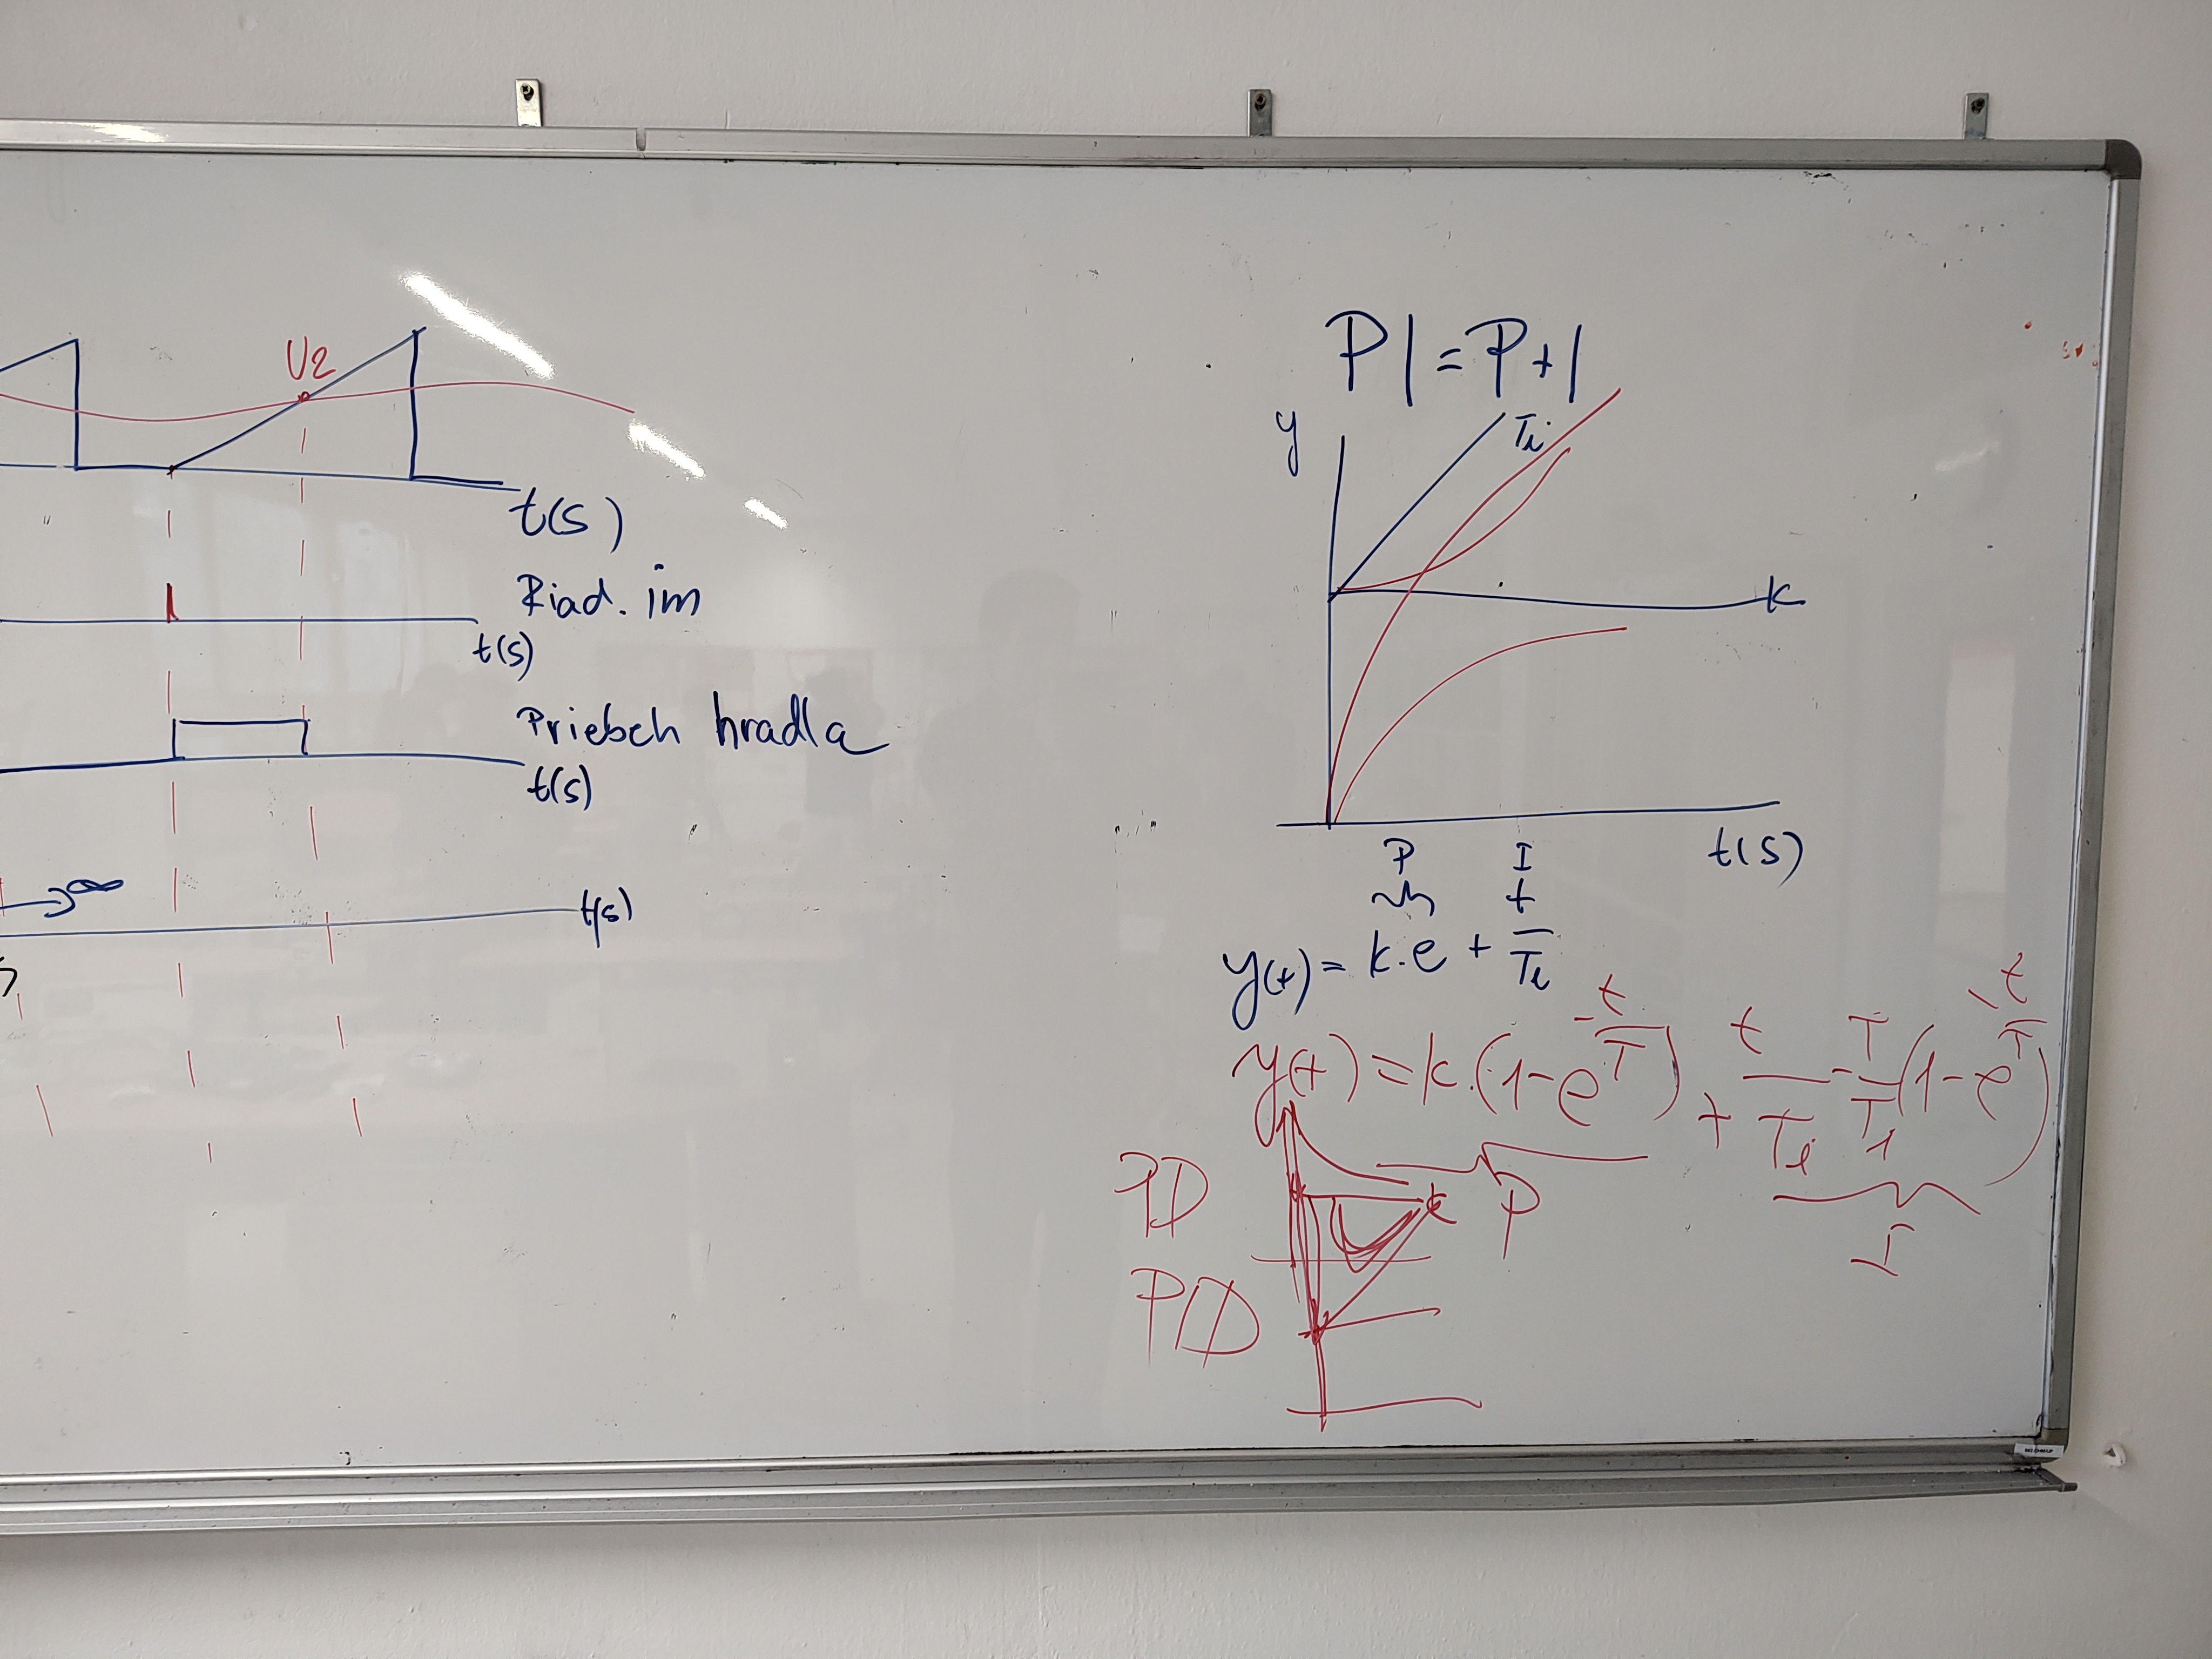 U2
t(s)
Riad. im
t(s)
Priebeh hradla
t(s)
→∞
t(s)
PI = P + I
y
Ti
k
t(s)
P I
y(t) = k.e + t/Ti
y(t) = k.(1-e^-t/T) + t/Ti - T/Ti(1-e^-t/T)
P
I
PD
k
PID